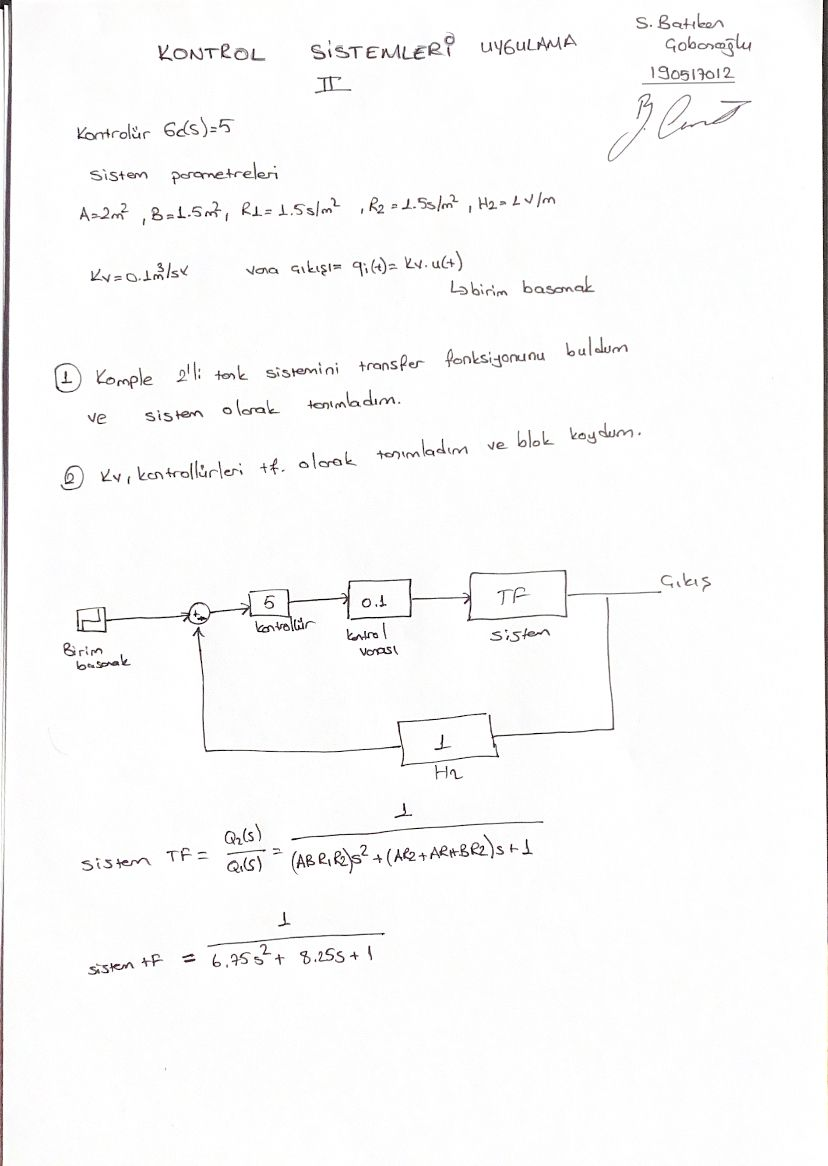 S. Batıkan
Goboroğlu
190517012
KONTROL SİSTEMLERİ UYGULAMA
II
Kontrolür Gc(s)=5
Sistem parametreleri
A=2m², B=1.5m², R1=1.5s/m², R2=1.5s/m², H2=1V/m
Kv=0.1m³/sV vana çıkışı= qi(t)= Kv.u(t)
↳birim basamak
① Komple 2'li tank sistemini transfer fonksiyonunu buldum
ve sistem olarak tanımladım.
② Kv, kontrollürleri tf. olarak tanımladım ve blok koydum.
Birim
basamak
+-
5
kontrollür
0.1
kontrol
vanası
TF
sistem
Çıkış
1
H2
sistem TF = Q2(s)/Q1(s) = 1/((ABR1R2)s²+(AR2+AR1+BR2)s+1)
sistem tf = 1/(6.75s²+8.25s+1)